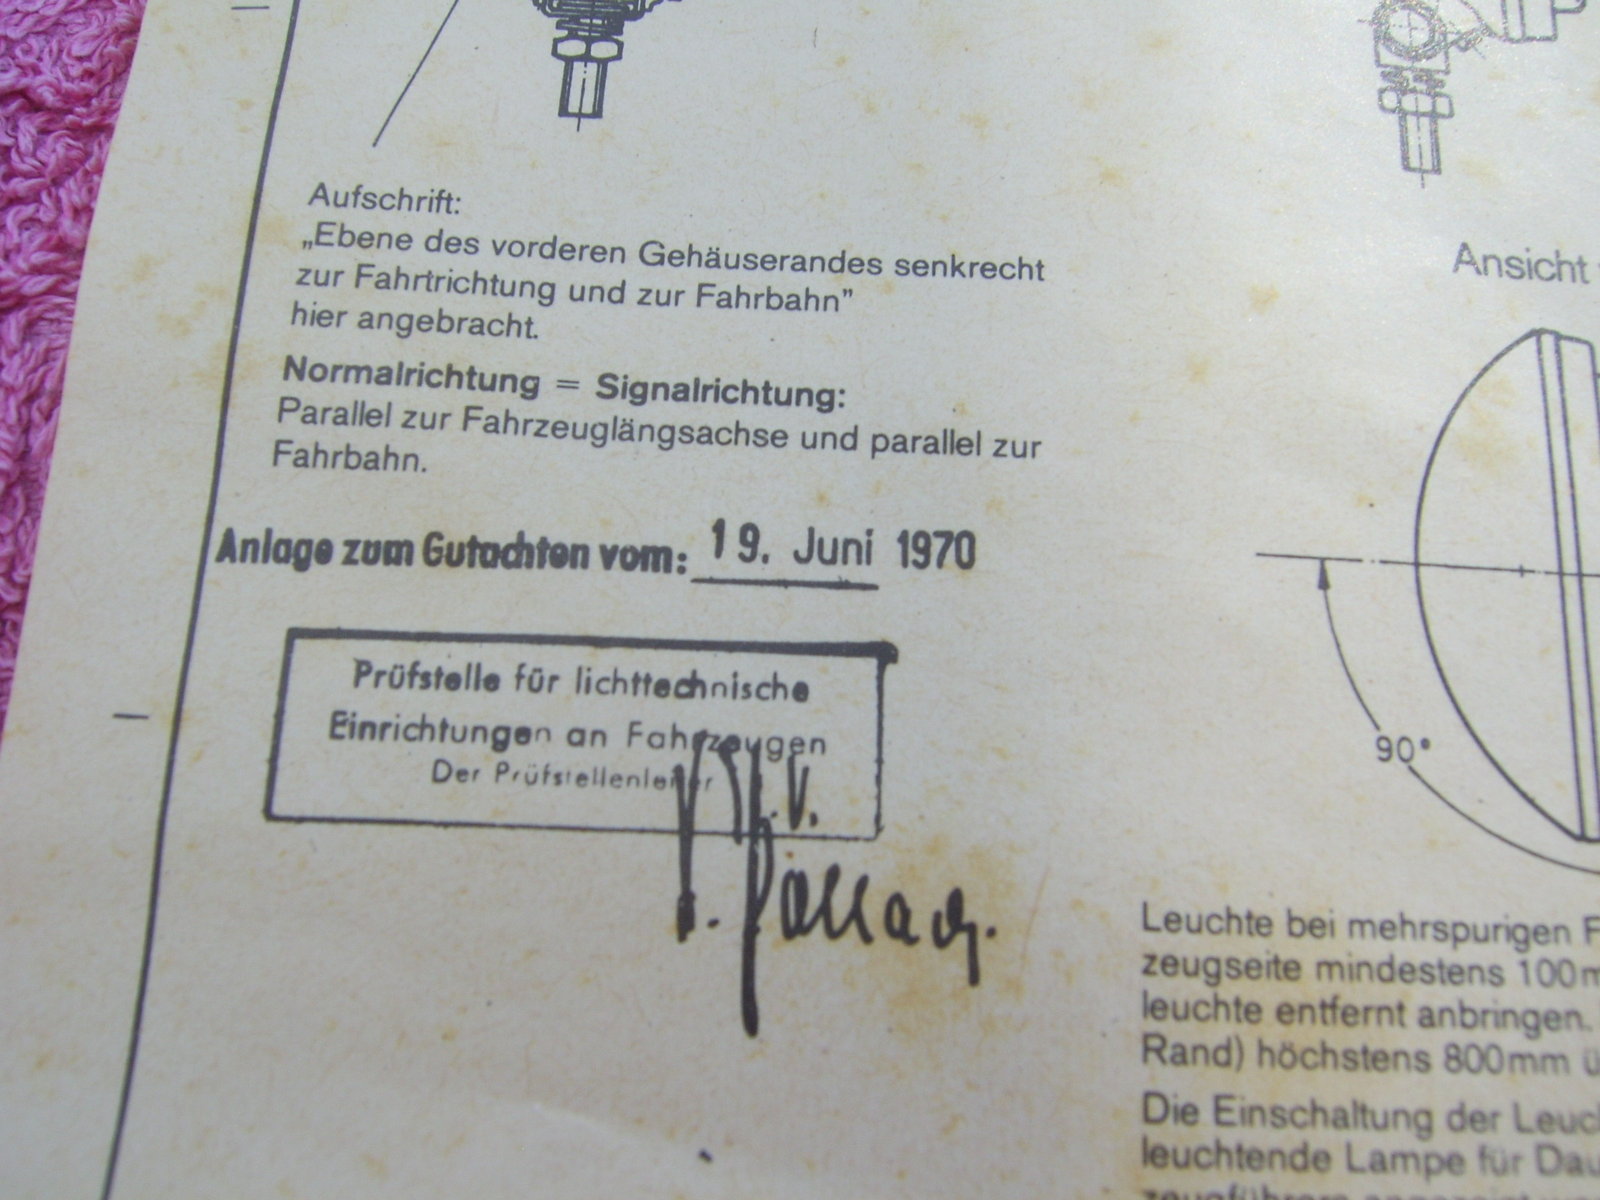 Aufschrift:
„Ebene des vorderen Gehäuserandes senkrecht
zur Fahrtrichtung und zur Fahrbahn”
hier angebracht.
Normalrichtung = Signalrichtung:
Parallel zur Fahrzeuglängsachse und parallel zur
Fahrbahn.
Anlage zum Gutachten vom: 19. Juni 1970
Prüfstelle für lichttechnische
Einrichtungen an Fahrzeugen
Der Prüfstellenleiter
Ansicht
90°
Leuchte bei mehrspurigen F
zeugseite mindestens 100m
leuchte entfernt anbringen.
Rand) höchstens 800mm ü
Die Einschaltung der Leuc
leuchtende Lampe für Dau